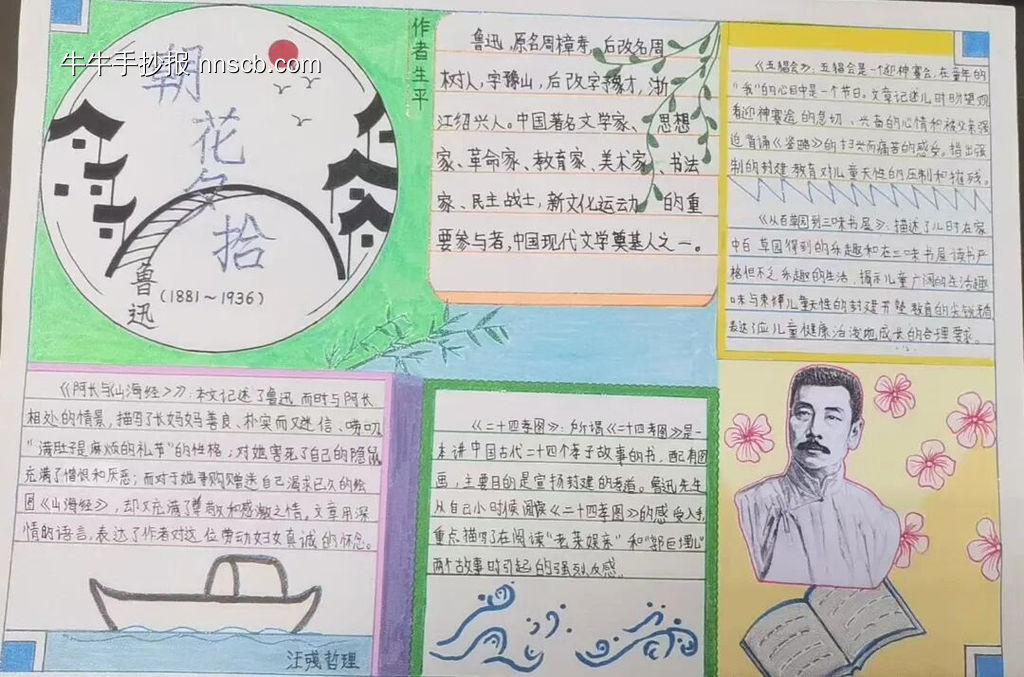 牛牛手抄报 nnscb.com
朝
花
夕
拾
鲁迅
(1881～1936)
作者生平
鲁迅,原名周樟寿,后改名周
树人,字豫山,后改字豫才,浙
江绍兴人。中国著名文学家、思想
家、革命家、教育家、美术家、书法
家、民主战士,新文化运动的重
要参与者,中国现代文学奠基人之一。
《五猖会》:五猖会是一个迎神赛会,在童年的
"我"的心目中是一个节日。文章记述儿时盼望观
看迎神赛会的急切、兴奋的心情和被父亲强
迫背诵《鉴略》的扫兴而痛苦的感受。指出强
制的封建教育对儿童天性的压制和摧残。
《从百草园到三味书屋》:描述了儿时在家
中百草园得到的乐趣和在三味书屋读书严
格但不乏乐趣的生活,揭示儿童广阔的生活趣
味与束缚儿童天性的封建书塾教育的尖锐矛盾
表达了应儿童健康活泼地成长的合理要求。
《阿长与山海经》:本文记述了鲁迅儿时与阿长
相处的情景,描写了长妈妈善良、朴实而又迷信、唠叨
"满肚子是麻烦的礼节"的性格;对她害死了自己的隐鼠
充满了憎恨和厌恶;而对于她寻购赠送自己渴求已久的绘
图《山海经》,却又充满了尊敬和感激之情。文章用深
情的语言,表达了作者对这位劳动妇女真诚的怀念。
《二十四孝图》:所谓《二十四孝图》是一
本讲中国古代二十四个孝子故事的书,配有图
画,主要目的是宣扬封建的孝道。鲁迅先生
从自己小时候阅读《二十四孝图》的感受入手,
重点描写了在阅读"老莱娱亲"和"郭巨埋儿"
两个故事时引起的强烈反感。
汪 哲理